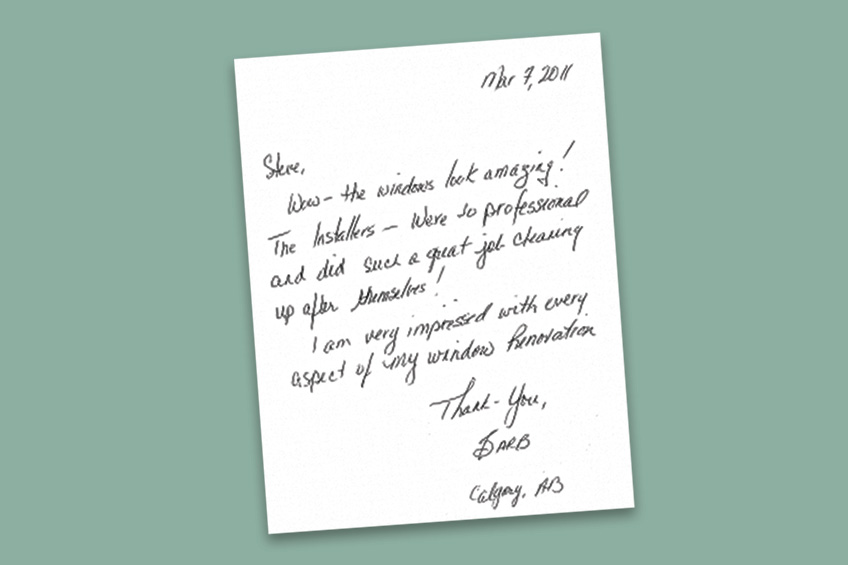 Mar 7, 2011
Steve,
Wow - the windows look amazing!
The Installers - Were so professional
and did such a great job cleaning
up after themselves!
I am very impressed with every
aspect of my window Renovation
Thank-You,
BARB
Calgary, AB